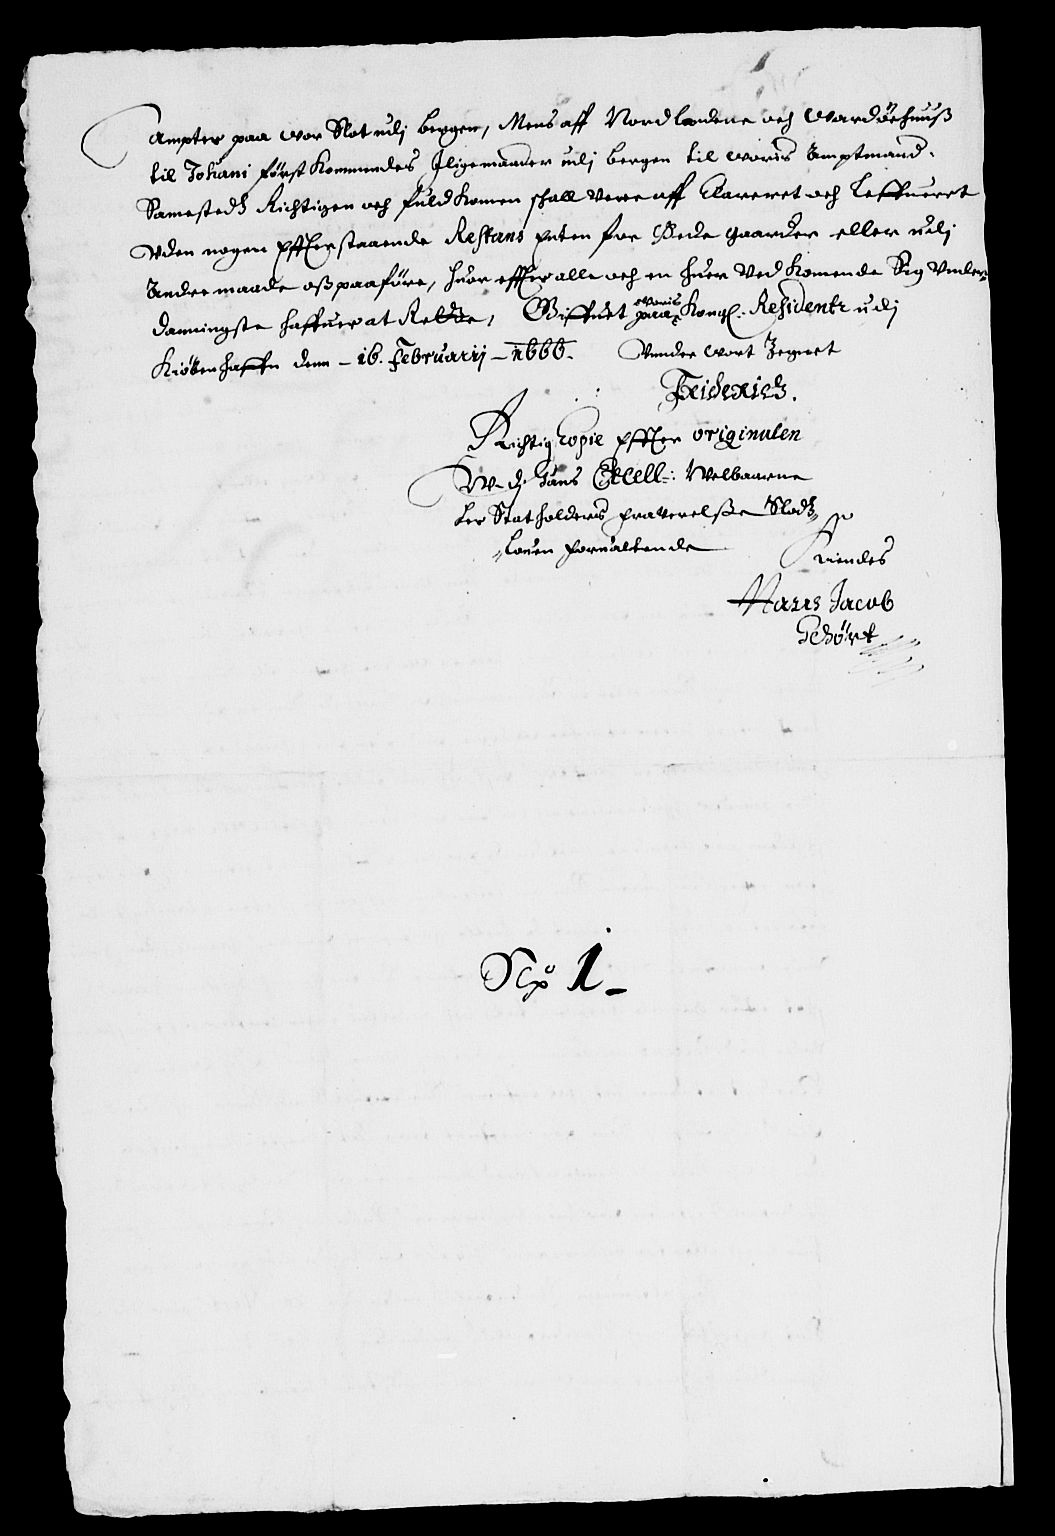 Ampter paa vor Slot udj bergen, Mens aff Nordlandene och Wardöehuuß
til Johani först Kommendes Jligemaader udj bergen til voris Amptmand
Samestedz Richtigen och fuldkomen schall vere aff Clareret och Leffueret
Uden nogen Effterstaaende Restans Enten for Öede gaarder eller udj
Andre maade oß paaföre, huor effter alle och en huer Ved Kommende Sig Under=
danningste haffuer at Rette, Giffuet paa voris Kongl. Residentz udj
Kiöbenhaffn denn - 16. Februarij - 1666. Under Vort Zegnet
Friderich.
Richtig Copie Effter originalen
Hans Excell: Welbaarne
her Statholders fraverelße Slodz
Louen forvaltende
Hans Jacob
Schört
No 1